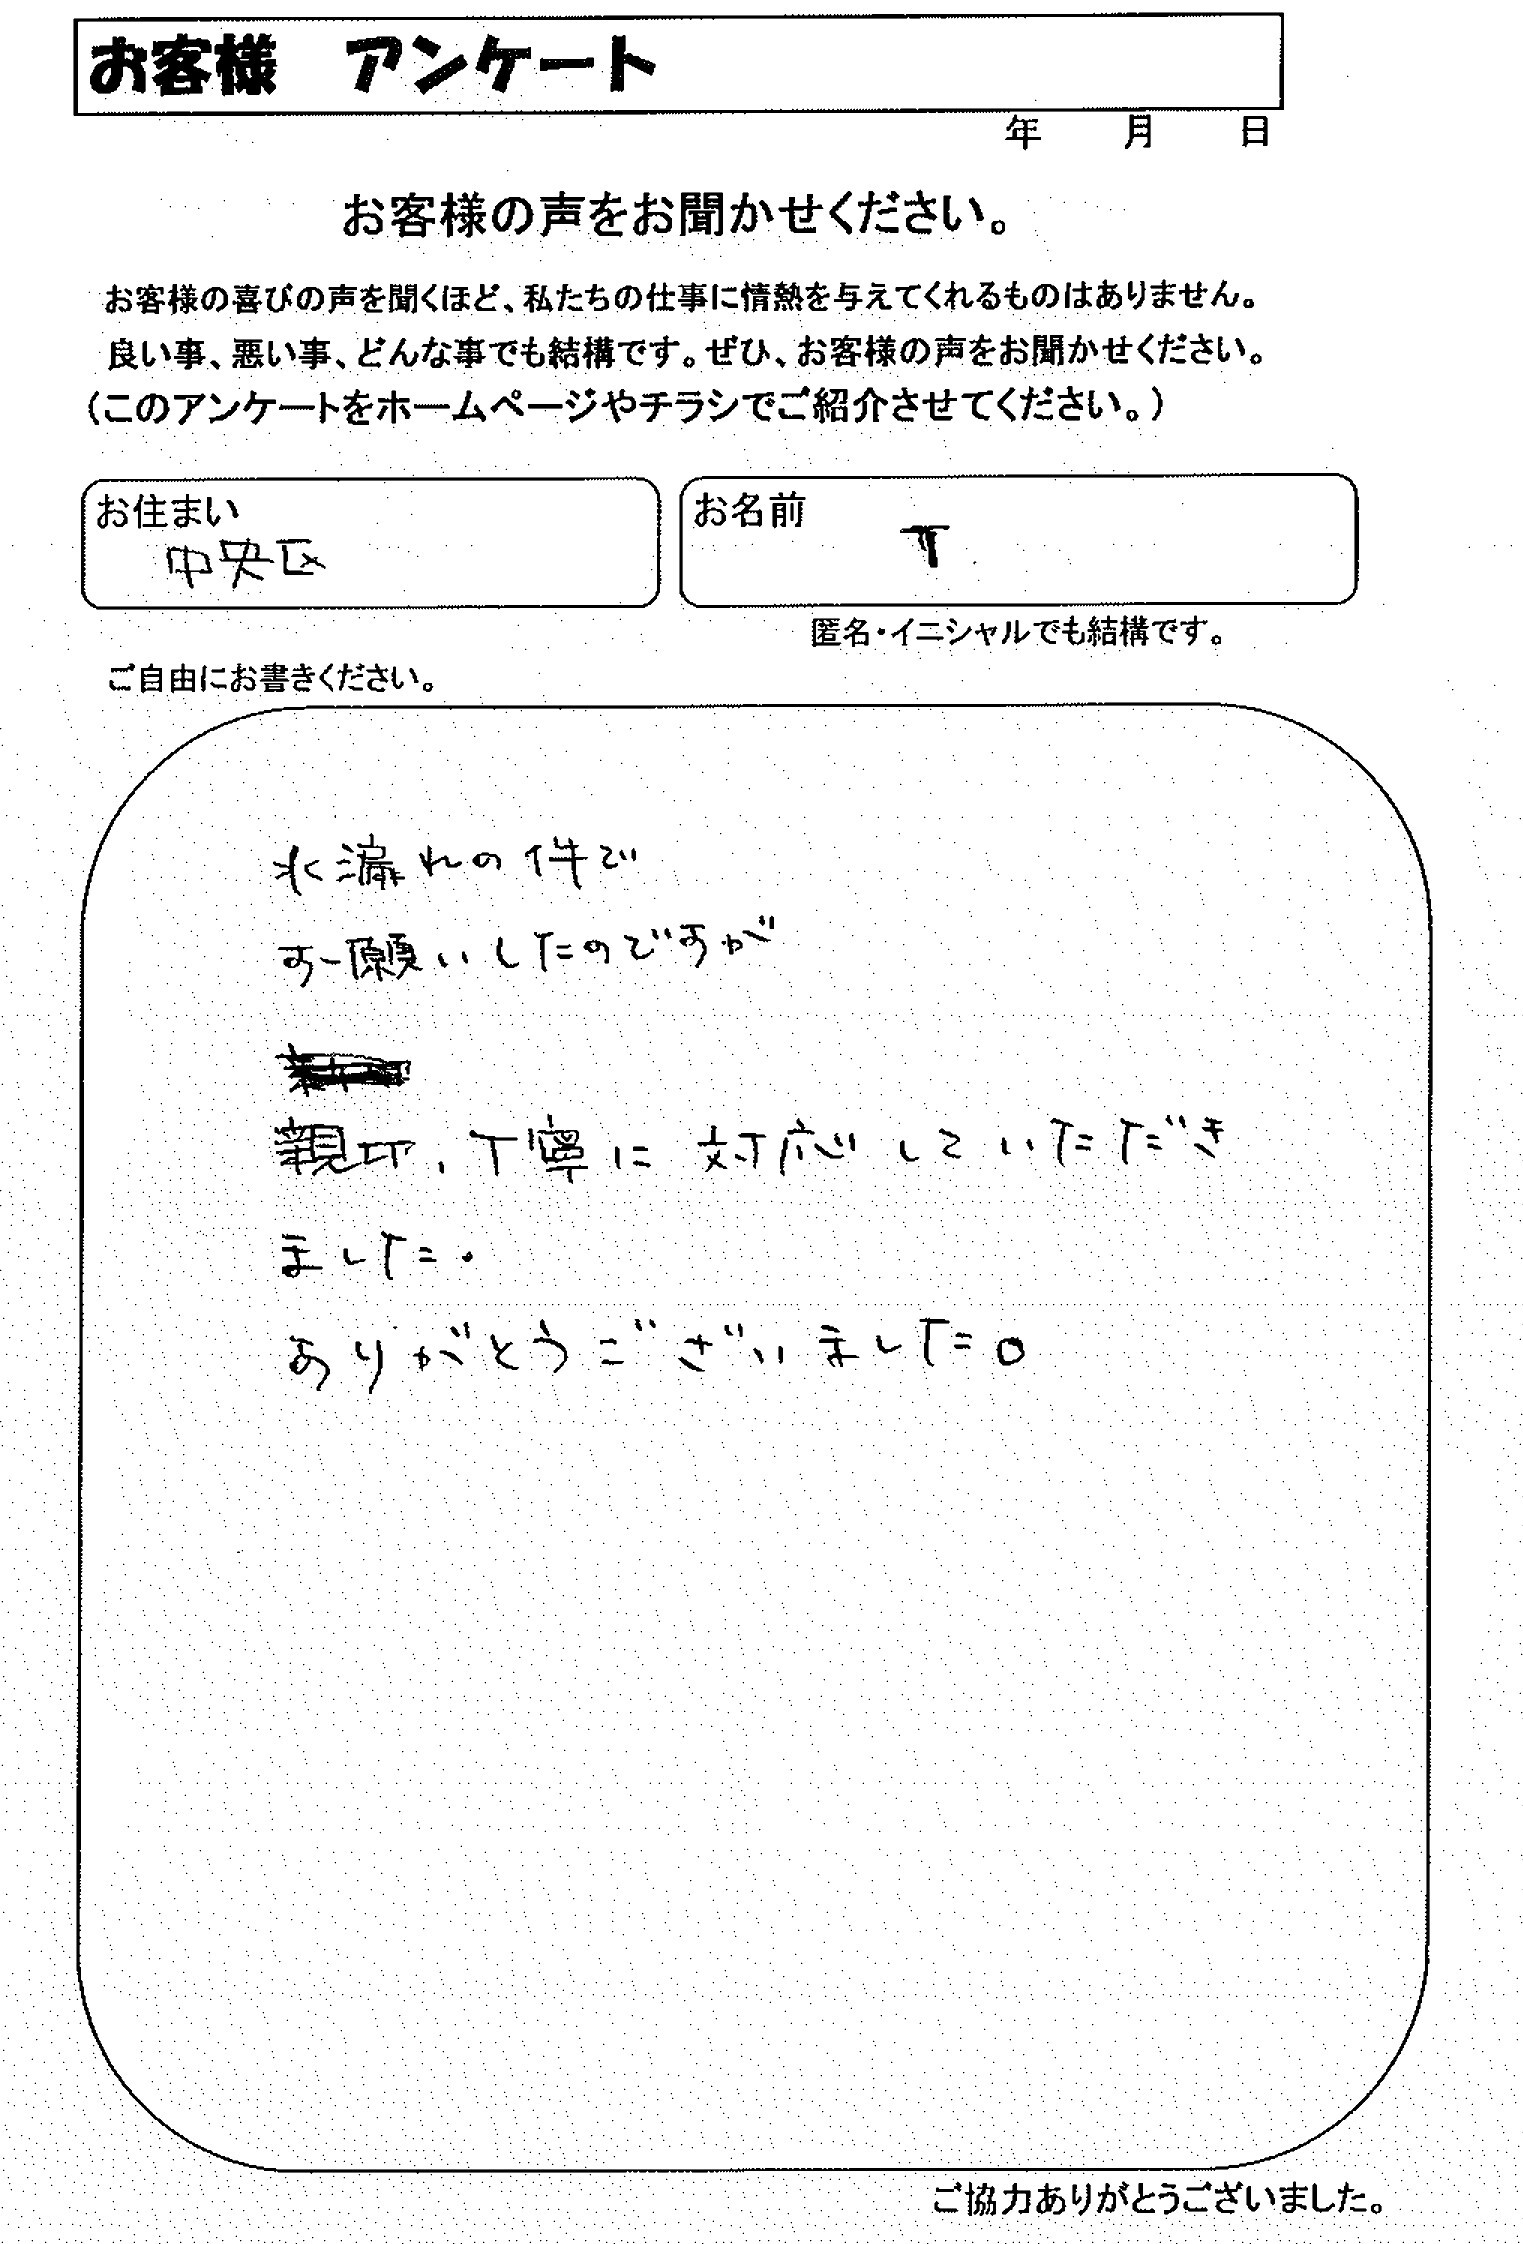 お客様　アンケート
年　月　日
お客様の声をお聞かせください。
お客様の喜びの声を聞くほど、私たちの仕事に情熱を与えてくれるものはありません。
良い事、悪い事、どんな事でも結構です。ぜひ、お客様の声をお聞かせください。
（このアンケートをホームページやチラシでご紹介させてください。）
お住まい
中央区
お名前
T
匿名・イニシャルでも結構です。
ご自由にお書きください。
水漏れの件で
お願いしたのですが
親切、丁寧に対応していただき
ました。
ありがとうございました。
ご協力ありがとうございました。